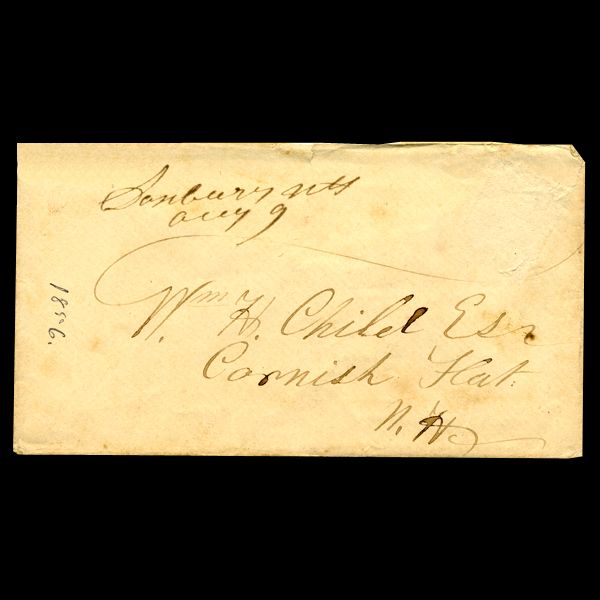 Danbury NH
Aug 9
Wm H. Child Esq
Cornish Flat
N. H.
1856.